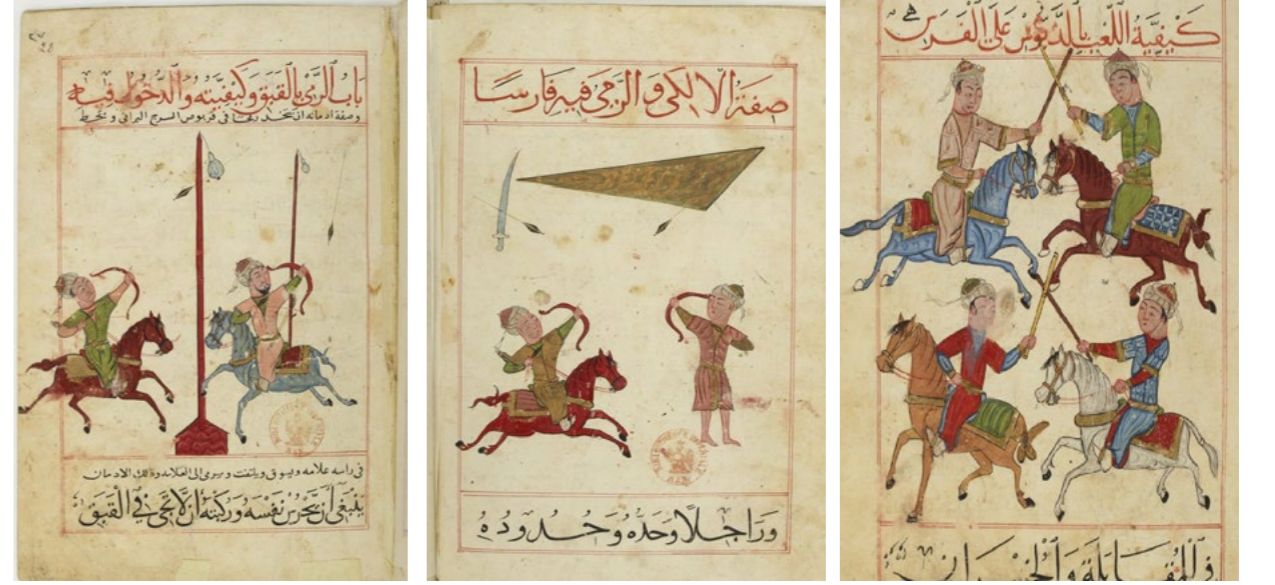 باب الرمي بالقبق وكيفيته والدخول فيه
وصفة ادمانه ان يتخذ رمحا في قربوس السرج البراني و يخيط
في راسه علامه ويسوق ويلتفت ويرمى الى العلامه وذلك الادمان
ينبغي ان يحرس نفسه وركبته ان لا تجي في القبق
صفة الالكى والرمي فيه فارسا
وراجلا وحده وحدوده
كيفية اللعب بالدبوس على الفرس
في المقابلة و